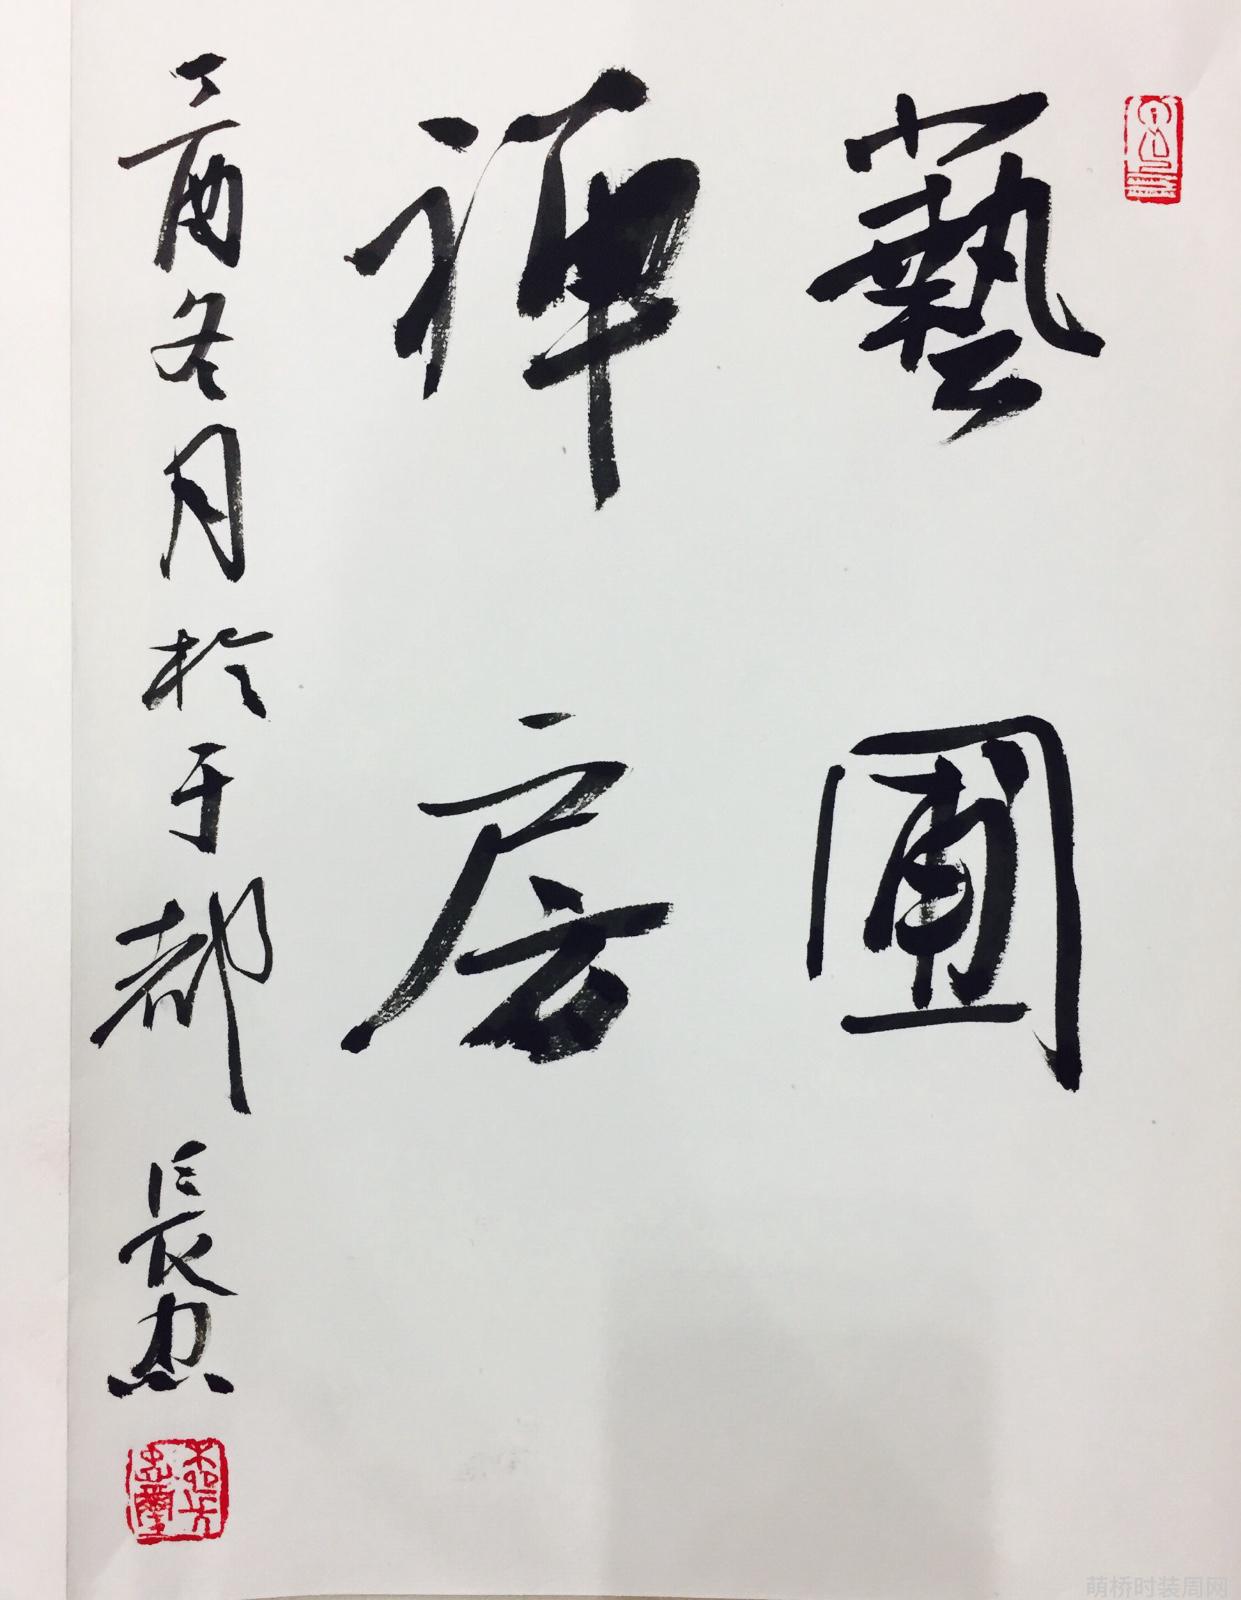 藝圃
禪房
丁酉冬月於于都 長
萌桥时装周网